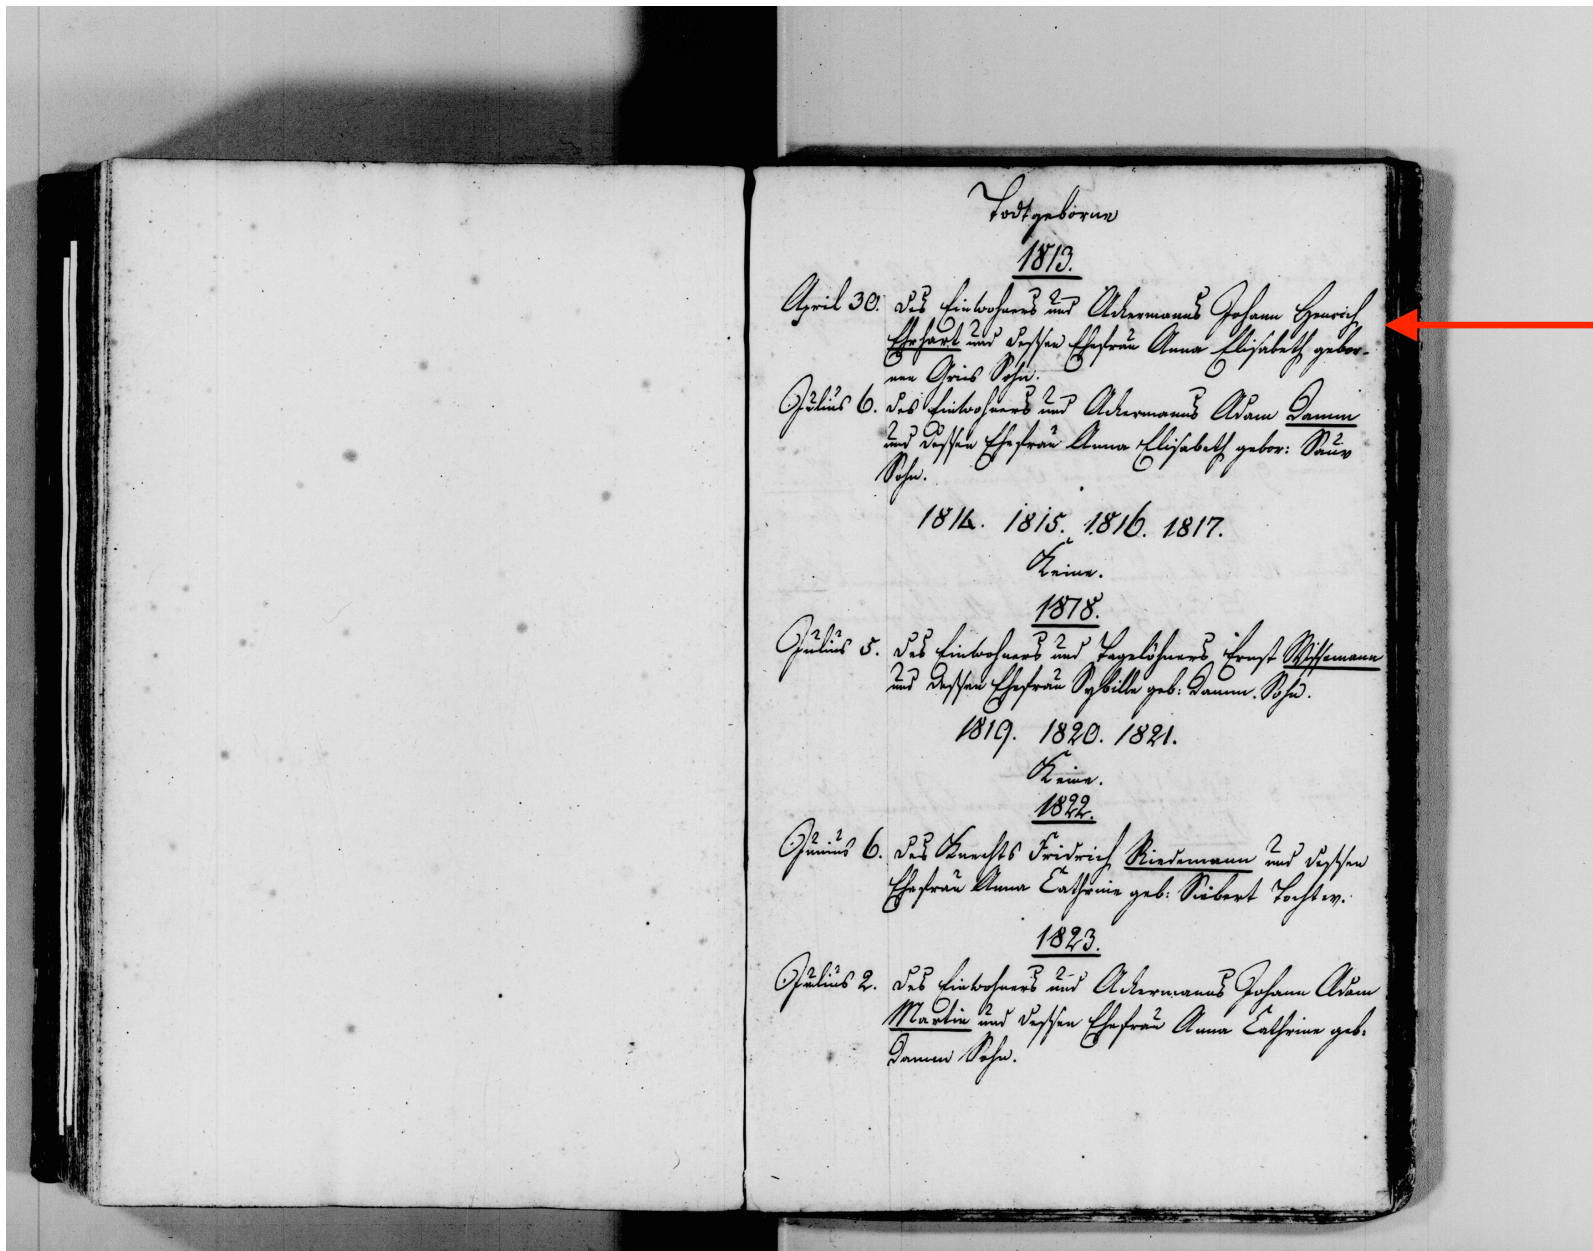 Todtgeborne
1813.
April 30. des Einwohners und Ackermanns Johann Henrich
Ehrhart und dessen Ehefrau Anna Elisabeth gebor-
nen Gries Sohn.
Julius 6. des Einwohners und Ackermanns Adam Damm
und dessen Ehefrau Anna Elisabeth gebor: Saur
Sohn.
1814. 1815. 1816. 1817.
Keine.
1818.
Julius 5. des Einwohners und Tagelöhners Ernst Wissemann
und dessen Ehefrau Sybille geb: Damm. Sohn.
1819. 1820. 1821.
Keine.
1822.
Junius 6. des Knechts Fridrich Riedemann und dessen
Ehefrau Anna Cathrine geb: Siebert Tochter.
1823.
Julius 2. des Einwohners und Ackermanns Johann Adam
Martin und dessen Ehefrau Anna Cathrine geb:
Damm Sohn.